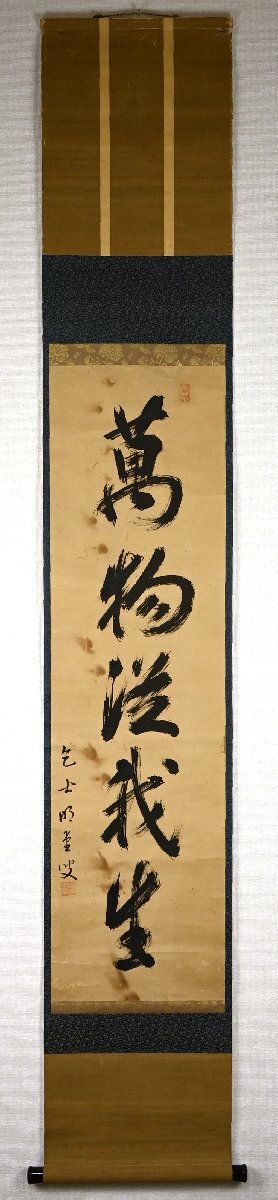 萬物從我生
乞士明堂叟